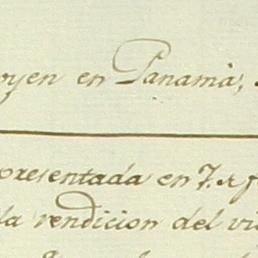 oyen en Panamà,
presentada en 7. de f
la rendicion del vi